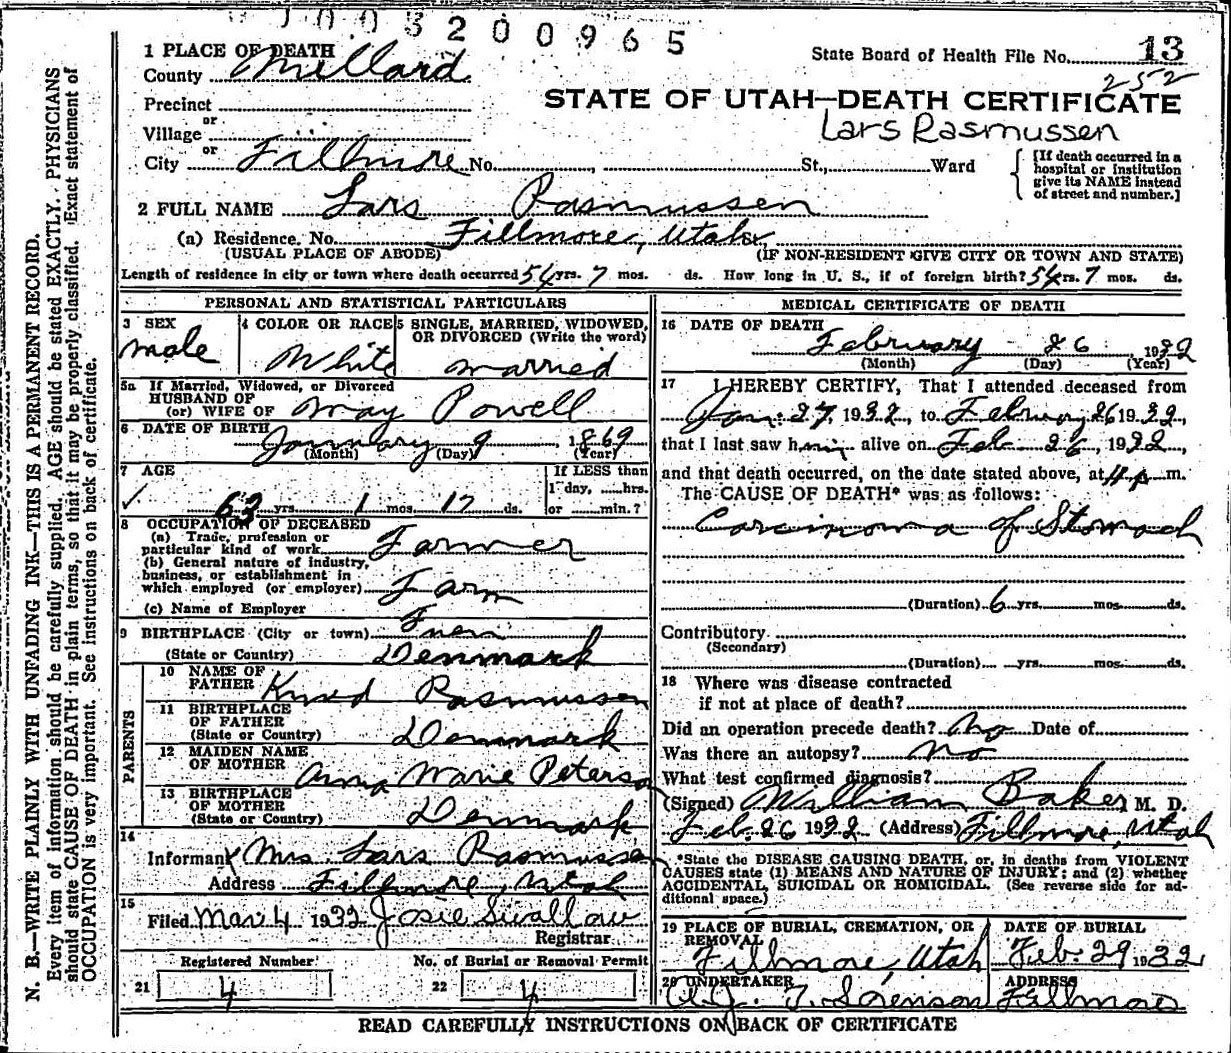 1003200965
1 PLACE OF DEATH
State Board of Health File No. 13
County Millard
252
Precinct
STATE OF UTAH—DEATH CERTIFICATE
or
Village
Lars Rasmussen
or
City Fillmore No. , St., Ward
[If death occurred in a
hospital or institution
give its NAME instead
of street and number.]
2 FULL NAME Lars Rasmussen
(a) Residence. No. Fillmore, Utah
(USUAL PLACE OF ABODE) (IF NON-RESIDENT GIVE CITY OR TOWN AND STATE)
Length of residence in city or town where death occurred 54 yrs. 7 mos. ds. How long in U. S., if of foreign birth? 54 yrs. 7 mos. ds.
PERSONAL AND STATISTICAL PARTICULARS
3 SEX
male
4 COLOR OR RACE
White
5 SINGLE, MARRIED, WIDOWED,
OR DIVORCED (Write the word)
married
5a If Married, Widowed, or Divorced
HUSBAND OF
(or) WIFE OF May Powell
6 DATE OF BIRTH January 9, 1869
(Month) (Day) (Year)
7 AGE
63 yrs. 1 mos. 17 ds.
If LESS than
1 day, ......hrs.
or ......min.?
8 OCCUPATION OF DECEASED
(a) Trade, profession or
particular kind of work Farmer
(b) General nature of industry,
business, or establishment in
which employed (or employer) Farm
(c) Name of Employer
9 BIRTHPLACE (City or town)
(State or Country) Denmark
PARENTS
10 NAME OF
FATHER Knud Rasmussen
11 BIRTHPLACE
OF FATHER
(State or Country) Denmark
12 MAIDEN NAME
OF MOTHER Anna Marie Peterso
13 BIRTHPLACE
OF MOTHER
(State or Country) Denmark
14
Informant Mrs. Lars Rasmussen
Address Fillmore, Utah
15
Filed Mar 4 1932 Josie Swallow
Registrar
Registered Number
21 4
No. of Burial or Removal Permit
22 4
MEDICAL CERTIFICATE OF DEATH
16 DATE OF DEATH
February 26, 1932
(Month) (Day) (Year)
17 I HEREBY CERTIFY, That I attended deceased from
Jan. 27, 1932, to February 26 1932,
that I last saw him alive on Feb 26, 1932,
and that death occurred, on the date stated above, at 4 p m.
The CAUSE OF DEATH* was as follows:
Carcinoma of Stomach
(Duration) 6 yrs. mos. ds.
Contributory
(Secondary)
(Duration) yrs. mos. ds.
18 Where was disease contracted
if not at place of death?
Did an operation precede death? No Date of
Was there an autopsy? No
What test confirmed diagnosis?
(Signed) William Baker, M. D.
Feb. 26 1932 (Address) Fillmore, Utah
*State the DISEASE CAUSING DEATH, or, in deaths from VIOLENT
CAUSES state (1) MEANS AND NATURE OF INJURY; and (2) whether
ACCIDENTAL, SUICIDAL OR HOMICIDAL. (See reverse side for ad-
ditional space.)
19 PLACE OF BURIAL, CREMATION, OR
REMOVAL
Fillmore, Utah
DATE OF BURIAL
Feb. 29 1932
20 UNDERTAKER
T. Sorenson
ADDRESS
Fillmore
READ CAREFULLY INSTRUCTIONS ON BACK OF CERTIFICATE
N. B.—WRITE PLAINLY WITH UNFADING INK—THIS IS A PERMANENT RECORD.
Every item of information should be carefully supplied. AGE should be stated EXACTLY. PHYSICIANS
should state CAUSE OF DEATH in plain terms, so that it may be properly classified. Exact statement of
OCCUPATION is very important. See instructions on back of certificate.